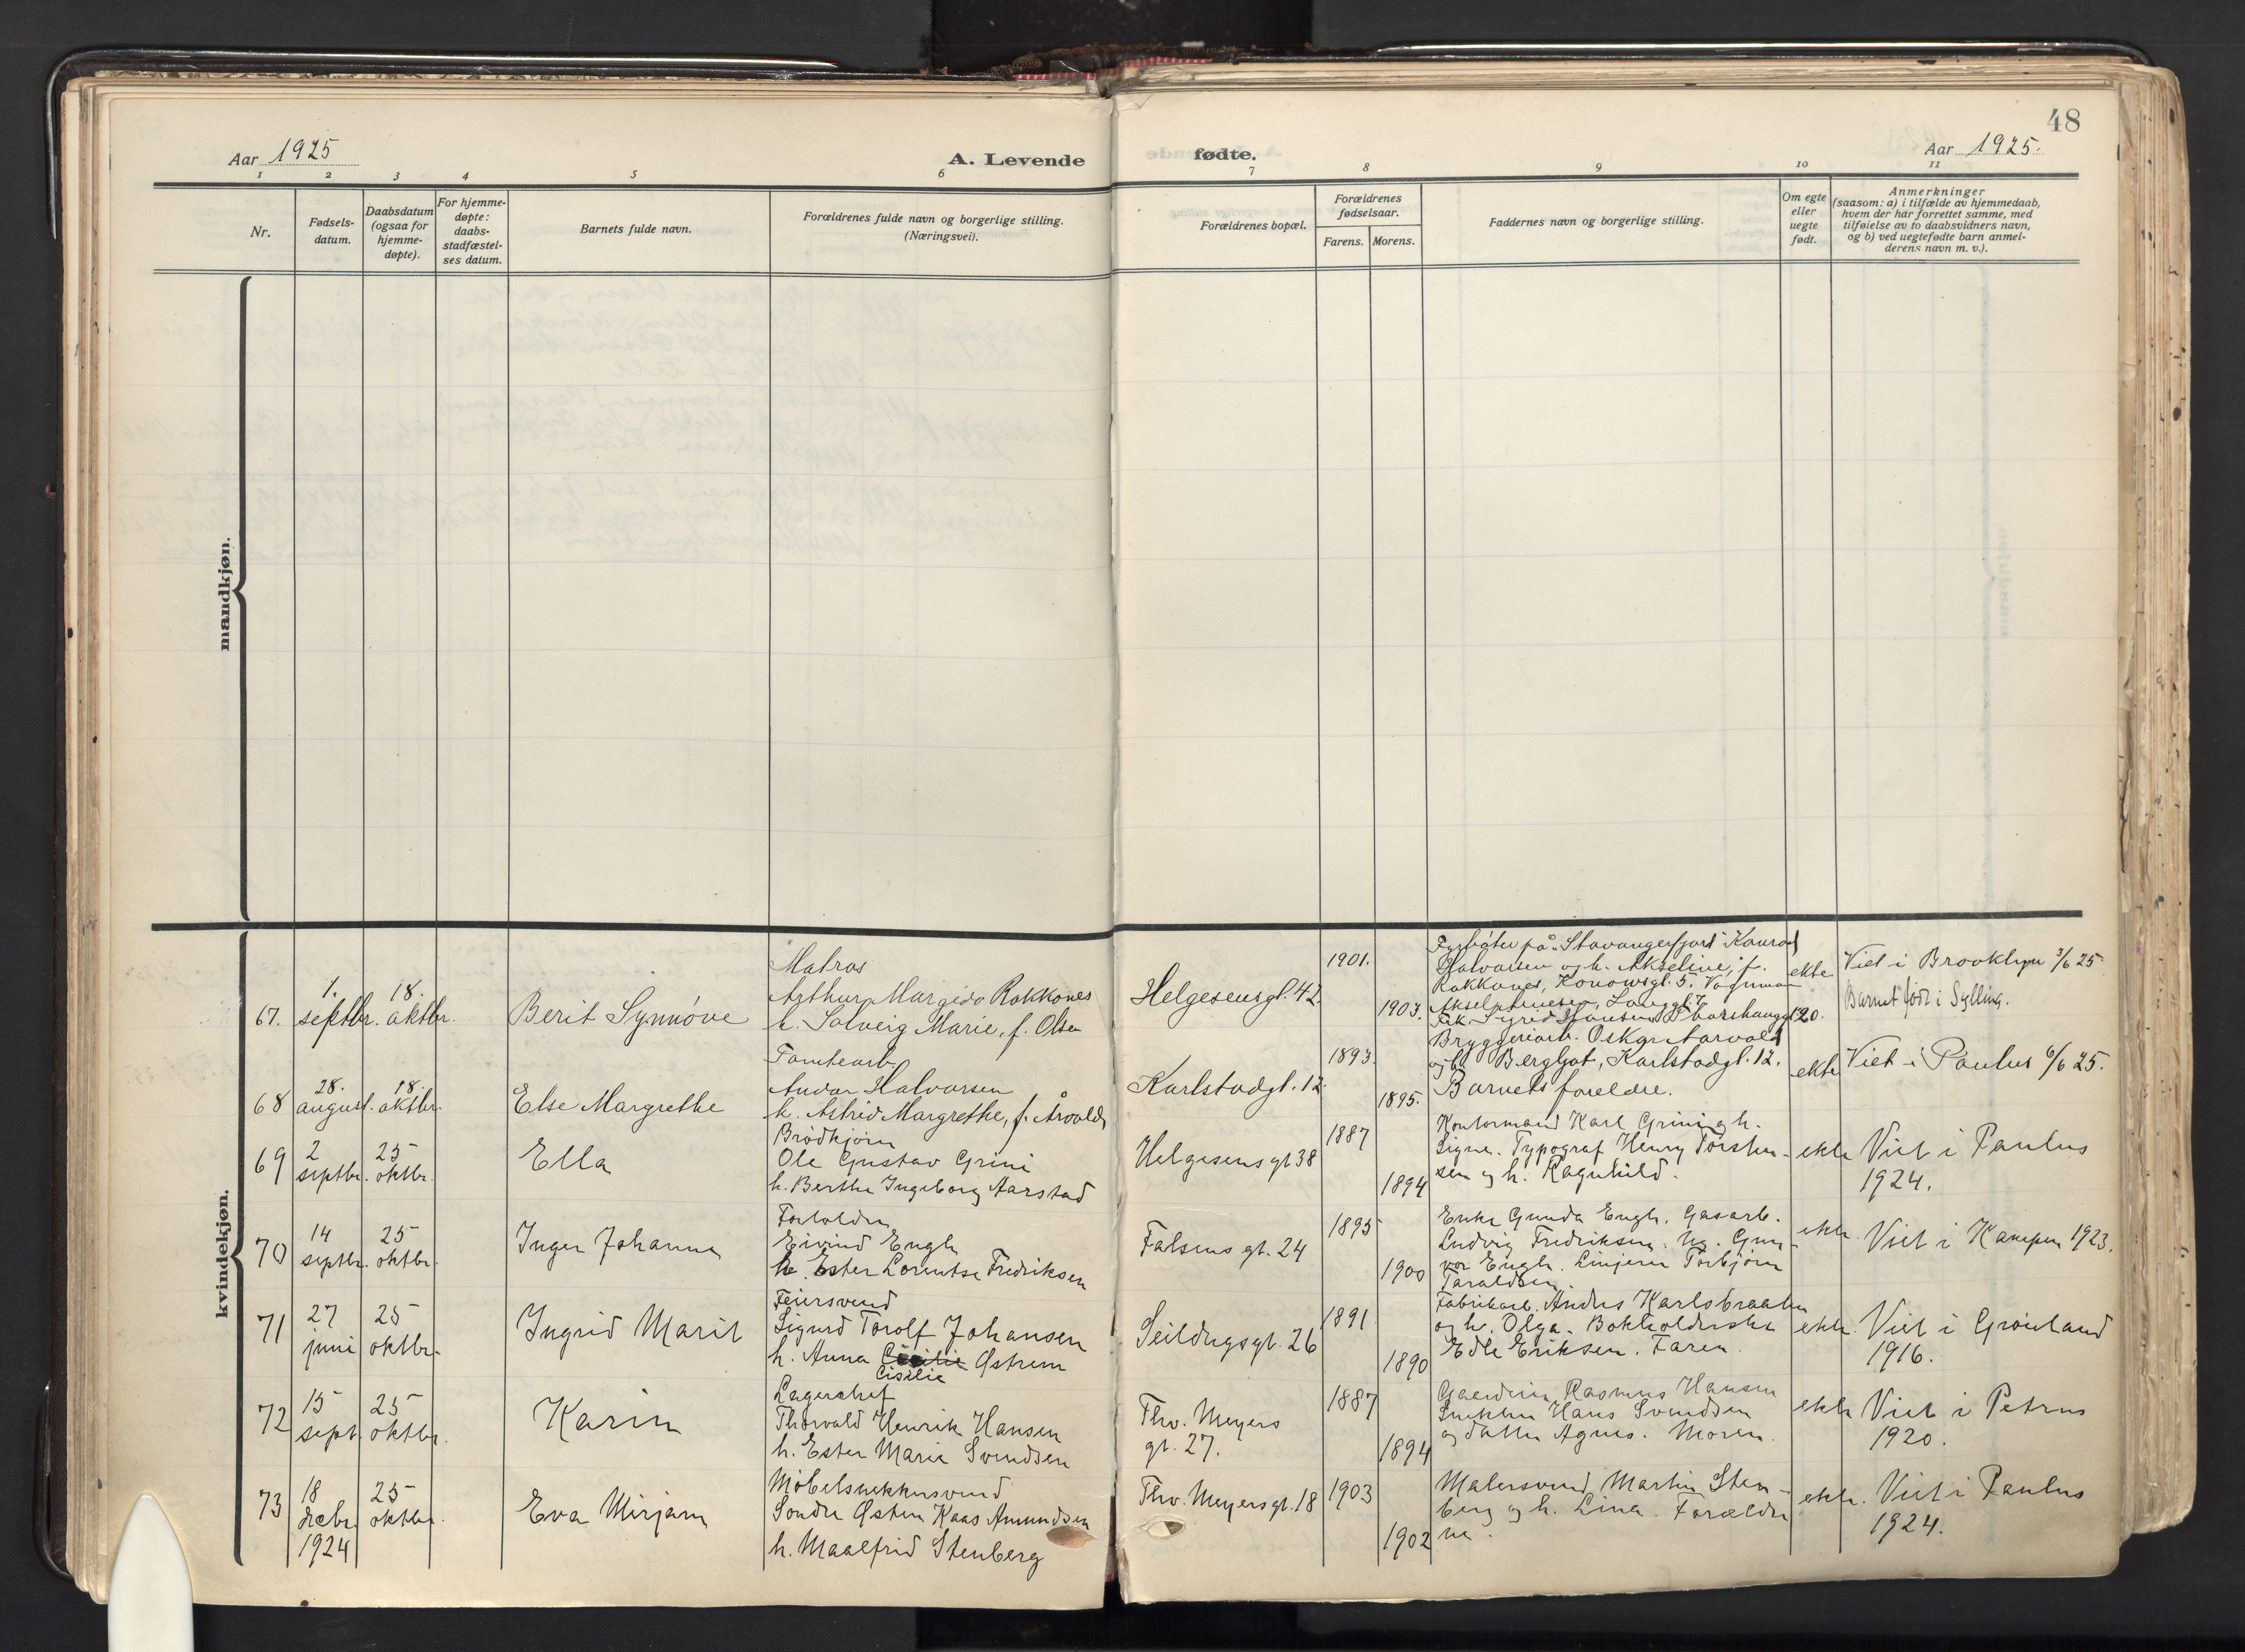 48
Aar 1925
A. Levende
fødte.
Aar 1925.
1 2 3 4 5 6 7 8 9 10 11
Nr.
Fødsels-
datum.
Daabsdatum
(ogsaa for
hjemme-
døpte).
For hjemme-
døpte:
daabs-
stadfæstel-
ses datum.
Barnets fulde navn.
Forældrenes fulde navn og borgerlige stilling.
(Næringsvei).
Forældrenes bopæl.
Forældrenes
fødselsaar.
Farens. Morens.
Faddernes navn og borgerlige stilling.
Om egte
eller
uegte
født.
Anmerkninger
(saasom: a) i tilfælde av hjemmedaab,
hvem der har forrettet samme, med
tilføielse av to daabsvidners navn,
og b) ved uegtefødte barn anmel-
derens navn m. v.).
mandkjøn.
kvindekjøn.
67.
1.
septbr.
18.
oktbr.
Berit Synnöve
Matros
Arthur Margido Rokkones
h. Solveig Marie, f. Olsen
Helgesensgt. 42.
1901.
1903.
Fyrbøter på "Stavangerfjord" Konrad
Halvorsen og h. Akseline, f.
Rokkones, Konowsgt. 5.
Aksel Langgt. 7
Frk. Sigrid Hansen, 20.
ekte
Viet i Brooklyn 3/6 25
Barnet født i Sylling.
68
28.
august.
18.
oktbr.
Else Margrethe
Tomtearb.
Andor Halvorsen
h. Astrid Margrethe, f. Årvold
Karlstadgt. 12.
1893.
1895.
Bryggeriarb. Oskar Aarvold
og h. Bergljot, Karlstadgt. 12.
Barnets foreldre.
ekte
Viet i Paulus 6/6 25.
69
2
septbr.
25
oktbr.
Ella
Brødkjører
Ole Gustav Grini
h. Berthe Ingeborg Aarstad
Helgesens gt 38
1887
1894
Kontormand Karl Grini og h.
Signe. Typograf Henry Torsten-
sen og h. Ragnhild.
ekte
Viet i Paulus
1924.
70
14
septbr.
25
oktbr.
Inger Johanne
Forlolder
Eivind Engh
h. Ester Lorentse Fredriksen
Falsens gt. 24
1895
1900
Enke Gunda Engh. Gasarb.
Ludvig Fredriksen. Ug. Gun-
vor Engh. Linjerer Torbjørn
Taraldsen.
ekte.
Viet i Kampen 1923.
71
27
juni
25
oktbr.
Ingrid Marit
Feiersvend
Sigurd Torolf Johansen
h. Anna Cisilie Østrem
Seildugsgt. 26
1891
1890
Fabrikarb. Anders Karlsbraaten
og h. Olga. Bokholderske
Edle Eriksen. Faren.
ekte.
Viet i Grønland
1916.
72
15
sept.
25
oktbr.
Karin
Lagerchef
Thorvald Henrik Hansen
h. Ester Marie Svendsen
Thv. Meyers
gt. 27.
1887
1894
Gaardeier Rasmus Hansen
Snekker Hans Svendsen
og datter Agnes. Moren.
ekte
Viet i Petrus
1920.
73
18
decbr.
1924
25
oktbr.
Eva Mirjam
Møbelsnekkersvend
Sondre Østen Kaas Amundsen
h. Maalfrid Stenberg
Thv. Meyers gt. 18
1903
1902
Malersvend Martin Sten-
berg og h. Lina. Forældre
ne.
ekte.
Viet i Paulus
1924.